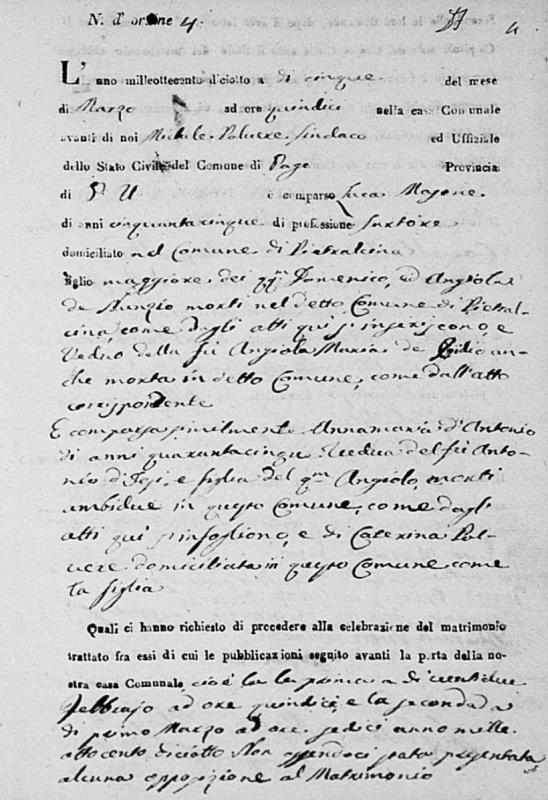 N. d'ordine 4.
L'anno milleottocento diciotto a di cinque del mese
di Marzo ad ore quindici nella casa Comunale
avanti di noi Michele Polvere Sindaco ed Uffiziale
dello Stato Civile del Comune di Pago Provincia
di P. U è comparso Luca Masone
di anni cinquantacinque di professione Sartore
domiciliato nel Comune di Pietralcina
figlio maggiore dei qm Domenico, ed Angiola
de Nunzio morti nel detto Comune di Pietral-
cina, come dagli atti qui s'inseriscono, e
Vedivo della fù Angiola Maria de an-
che morta in detto Comune, come dall'atto
corrispondente
E comparsa similmente Annamaria d'Antonio
di anni quarantacinque Vedua del fù Anto-
nio e figlia del qm Angiolo, morti
ambidue in questo Comune, come dagli
atti qui s'infogliono, e di Caterina Pol-
vere domiciliata in questo Comune come
la figlia
Quali ci hanno richiesto di procedere alla celebrazione del matrimonio
trattato fra essi di cui le pubblicazioni seguito avanti la porta della no-
stra casa Comunale cioè la prima a di ventidue
Febbrajo ad ore quindici, e la seconda a
di primo Marzo ad ore sedici, anno mille
ottocento diciotto Non essendoci stata presentata
alcuna opposizione al Matrimonio